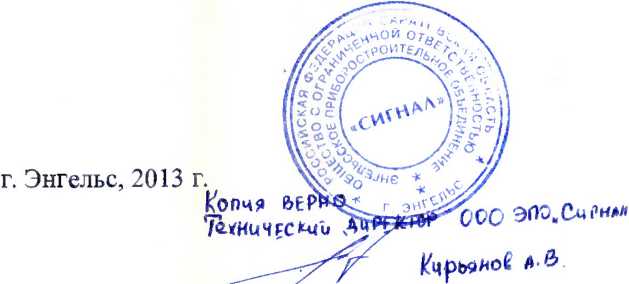 РОССИЙСКАЯ ФЕДЕРАЦИЯ САРАТОВСКАЯ ОБЛАСТЬ
ОБЩЕСТВО С ОГРАНИЧЕННОЙ ОТВЕТСТВЕННОСТЬЮ
ЭНГЕЛЬССКОЕ ПРИБОРОСТРОИТЕЛЬНОЕ ОБЪЕДИНЕНИЕ
«СИГНАЛ»
г. ЭНГЕЛЬС
г. Энгельс, 2013 г.
Копия ВЕРНО
Технический директор ООО ЭПО „Сигнал
Кирьянов А.В.